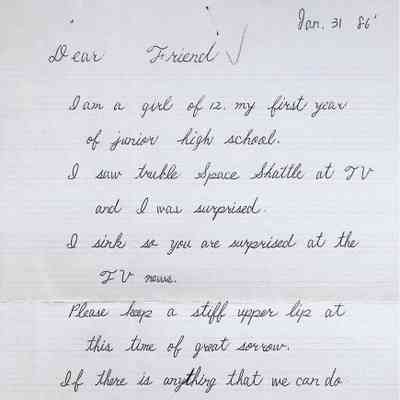 Jan. 31 86'
Dear Friend
I am a girl of 12. my first year
of junior high school.
I saw truble Space Shattle at TV
and I was surprised.
I sink so you are surprised at the
TV news.
Please keep a stiff upper lip at
this time of great sorrow.
If there is anything that we can do